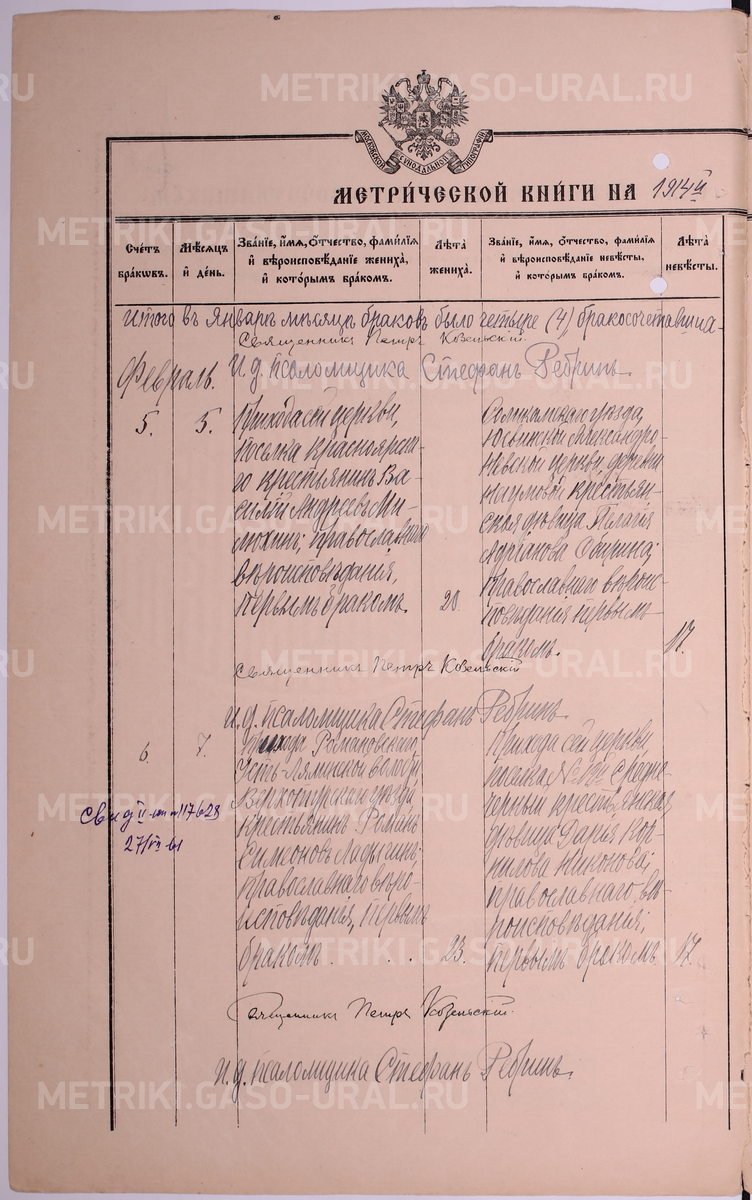 METRIKI.GASO-URAL.RU
МОСКОВСКОЙ СѴНОДАЛЬНОЙ ТИПОГРАФІИ
МЕТРИ́ЧЕСКОЙ КНИ́ГИ НА 1914 й
Сче́тъ бра́кωвъ.
Мѣ́сяцъ и҆ де́нь.
Зва́нїе, и҆́мя, ѻ҆́тчество, фами́лїя и҆ вѣроисповѣ́данїе жениха̀, и҆ кото́рымъ бра́комъ.
Лѣ́та жениха̀.
Зва́нїе, и҆́мя, ѻ҆́тчество, фами́лїя и҆ вѣроисповѣ́данїе невѣ́сты, и҆ кото́рымъ бра́комъ.
Лѣ́та невѣ́сты.
Итого въ Январѣ мѣсяцѣ браковъ было четыре (4) бракосочетавшиа-
Священникъ Петръ Козельскій
Февраль. И. д. псаломщика Стефанъ Ребринъ.
5. 5.
Прихода сей церкви,
поселка Красноярска-
го крестьянинъ Ва-
силій Андреевъ Ми-
люхинъ; православнаго
вѣроисповѣданія,
первымъ бракомъ.
20.
уѣзда,
Юсвинской Александро-
Невской церкви, деревни
Наумовой крестьян-
ская дѣвица Пелагія
Адріанова
православнаго вѣроис-
повѣданія первымъ
бракомъ.
17.
Священникъ Петръ Козельскій
И. д. псаломщика Стефанъ Ребринъ.
6. 7.
Прихода Романовскаго,
Усть-Лялинской волости,
Верхотурскаго уѣзда
крестьянинъ Романъ
Симеоновъ Ладыгинъ;
православнаго вѣро-
исповѣданія, первымъ
бракомъ.
23.
Прихода сей церкви,
поселка
крестьянская
дѣвица Дарія Кор-
нилова Никонова;
православнаго вѣ-
роисповѣданія;
первымъ бракомъ.
17.
27/VII-61
Священникъ Петръ Козельскій.
И. д. псаломщика Стефанъ Ребринъ.